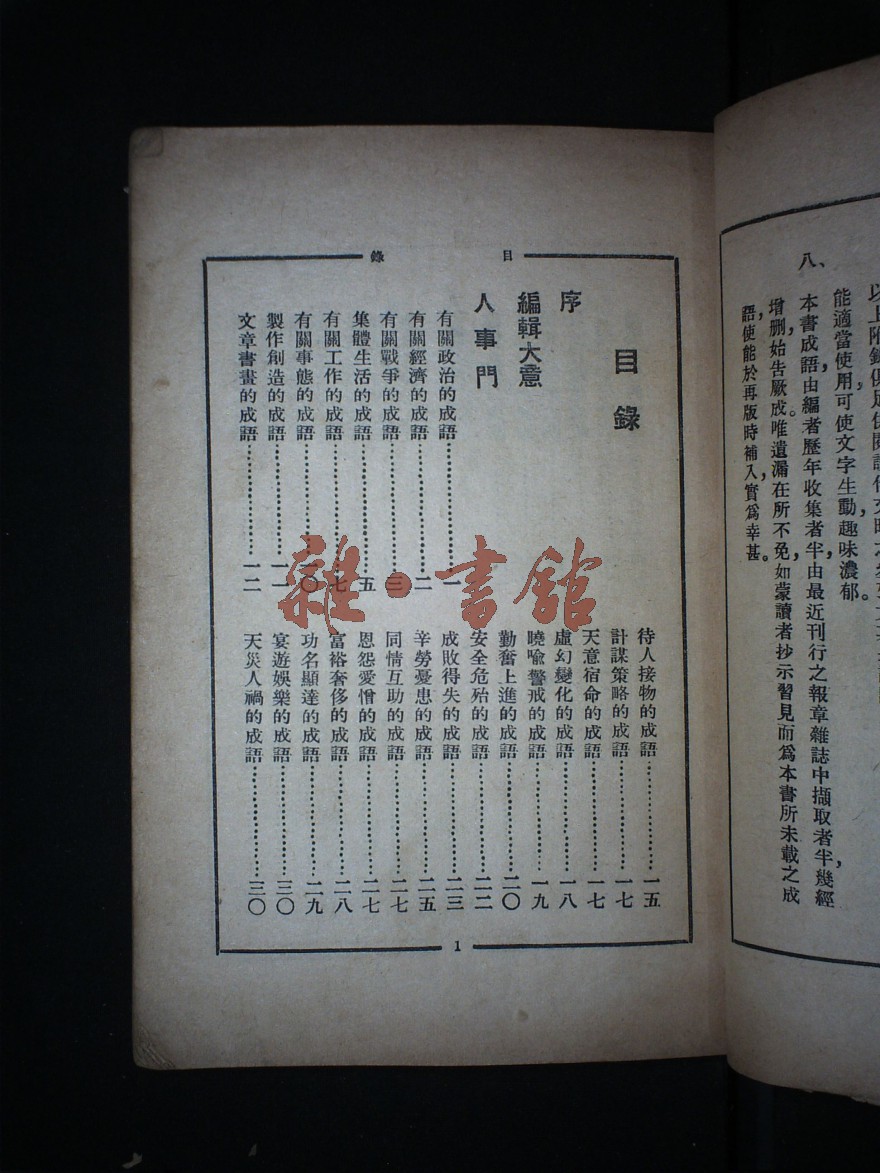 能適當使用,可使文字生動,趣味濃郁。
八、本書成語由編者歷年收集者半,由最近刊行之報章雜誌中擷取者半,幾經
增删,始告厥成。唯遺漏在所不免,如蒙讀者抄示習見而爲本書所未載之成
語,使能於再版時補入,實爲幸甚。
目錄
目錄
序
編輯大意
人事門
有關政治的成語…………一
有關經濟的成語…………二
有關戰爭的成語…………三
集體生活的成語…………五
有關工作的成語…………七
有關事態的成語…………一〇
製作創造的成語…………一一
文章書畫的成語…………一二
待人接物的成語…………一五
計謀策略的成語…………一七
天意宿命的成語…………一七
虛幻變化的成語…………一八
曉喻警戒的成語…………一九
勤奮上進的成語…………二〇
安全危殆的成語…………二二
成敗得失的成語…………二三
辛勞憂患的成語…………二五
同情互助的成語…………二七
恩怨愛憎的成語…………二七
富裕奢侈的成語…………二八
功名顯達的成語…………二九
宴遊娛樂的成語…………三〇
天災人禍的成語…………三〇
1
雜·書館